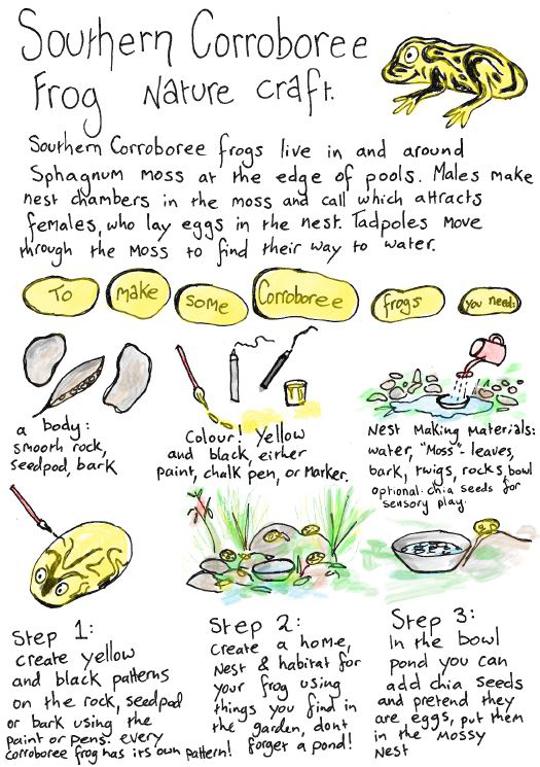 Southern Corroboree
Frog Nature craft.
Southern Corroboree frogs live in and around
Sphagnum moss at the edge of pools. Males make
nest chambers in the moss and call which attracts
females, who lay eggs in the nest. Tadpoles move
through the moss to find their way to water.
To make some Corroboree frogs you need:
a body:
smooth rock,
seedpod, bark
Colour! Yellow
and black, either
paint, chalk pen, or Marker.
Nest Making Materials:
water, "Moss"- leaves,
bark, twigs, rocks, bowl
optional: chia seeds for
sensory play.
Step 1:
create yellow
and black patterns
on the rock, seedpod
or bark using the
paint or pens. every
corroboree frog has its own pattern!
Step 2:
Create a home,
Nest & habitat for
your frog using
things you find in
the garden, dont
forget a pond!
Step 3:
In the bowl
pond you can
add chia seeds
and pretend they
are eggs, put them
in the mossy
Nest